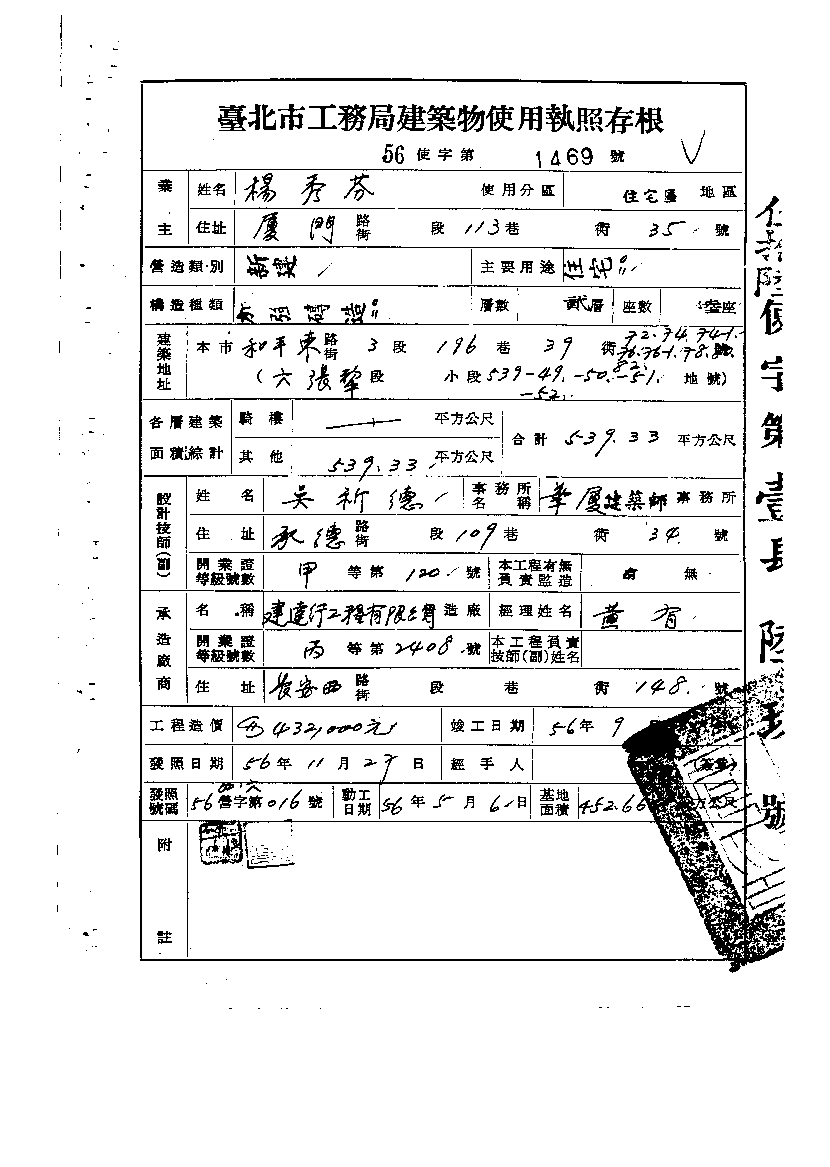 臺北市工務局建築物使用執照存根
56 使字第 1469 號
業主 姓名 楊秀芬 使用分區 住宅區 地區
住址 廈門 路街 段 113 巷 衖 35 號
營造類別 新建 主要用途 住宅
構造種類 加强磚造 層數 貳層 座數 壹座
建築地址 本市 和平東 路街 3 段 196 巷 39 衖 72.74.74-1. 76.76-1.78.80. 82. 號
(六張犂 段 小段 539-49.-50.-51. -52. 地號)
各層建築面積綜計 騎樓 平方公尺 合計 539.33 平方公尺
其他 539.33 平方公尺
設計技師(副) 姓名 吳祈德 事務所名稱 華廈建築師 事務所
住址 承德 路街 段 109 巷 衖 34 號
開業證等級號數 甲 等第 120 號 本工程有無負責監造 有 無
承造廠商 名稱 建達行工程有限公司 營造廠 經理姓名 黃有
開業證等級號數 丙 等第 2408 號 本工程負責技師(副)姓名
住址 長安西 路街 段 巷 衖 148 號
工程造價 432,000元 竣工日期 56年 9
發照日期 56年 11月 27日 經手人
發照號碼 56 營字第 016 號 動工日期 56年 5月 6日 基地面積 452.66 平方公尺
附註
使字第壹長陸玖號